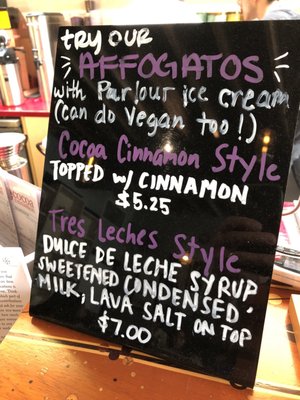 TRY OUR
AFFOGATOS
with Parlour ice cream
(can do Vegan too!)
Cocoa Cinnamon Style
TOPPED w/ CINNAMON
$5.25
Tres Leches Style
DULCE DE LECHE SYRUP
SWEETENED CONDENSED
MILK, LAVA SALT ON TOP
$7.00